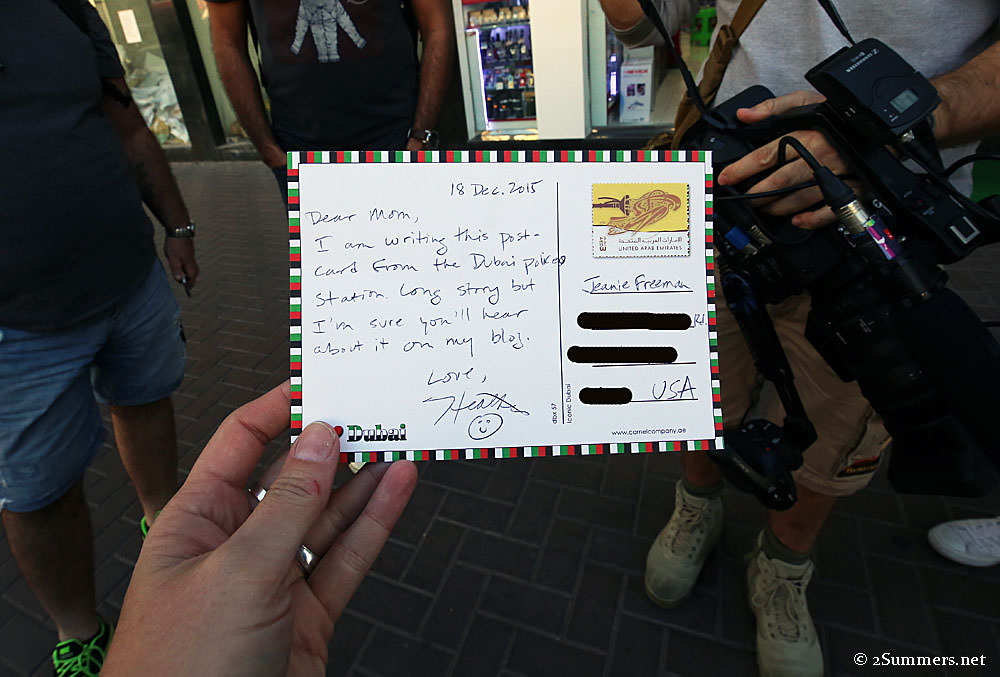 18 Dec. 2015
Dear Mom,
I am writing this post-
card from the Dubai police
station. Long story but
I'm sure you'll hear
about it on my blog.
Love,
Heather
الإمارات العربية المتحدة
UNITED ARAB EMIRATES
Jeanie Freeman
Rd.
USA
Dubai
dbx 57
Iconic Dubai
www.camelcompany.ae
© 2Summers.net